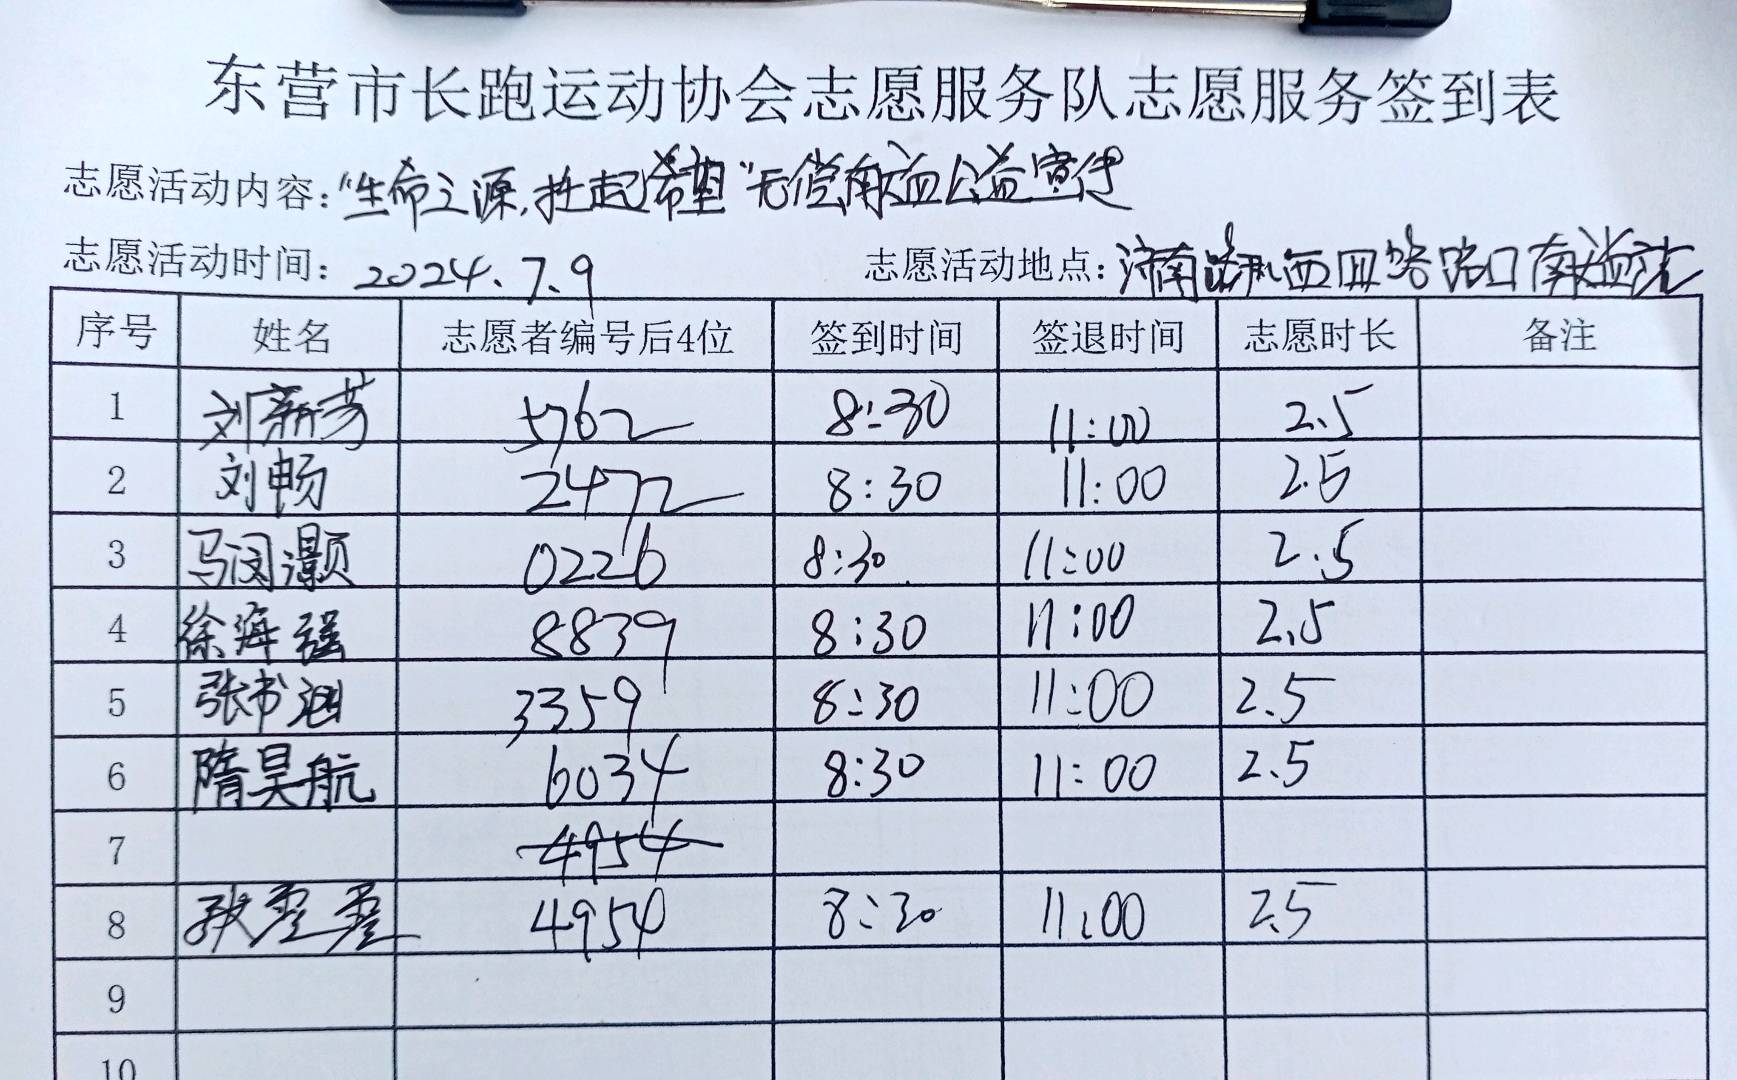 东营市长跑运动协会志愿服务队志愿服务签到表
志愿活动内容:“生命之源,托起希望”无偿献血公益宣传
志愿活动时间: 2024.7.9 志愿活动地点: 济南路西四路路口献血站
序号 姓名 志愿者编号后4位 签到时间 签退时间 志愿时长 备注
1 刘新芳 5762 8:30 11:00 2.5
2 刘畅 2472 8:30 11:00 2.5
3 马闵灏 0226 8:30 11:00 2.5
4 徐海强 8839 8:30 11:00 2.5
5 张书涵 3359 8:30 11:00 2.5
6 隋昊航 6034 8:30 11:00 2.5
7 4954
8 4954 8:30 11:00 2.5
9
10